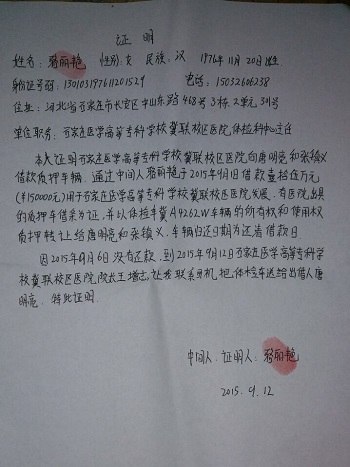 证明
姓名: 丽艳 性别: 女 民族: 汉 1976年11月20日姓
身份证号码: 130103197611201529 电话: 15032606238
住址: 河北省石家庄市长安区中山东路468号3栋2单元311号
单位职务: 石家庄医学高等专科学校冀联校区医院, 体检科
本人证明石家庄医学高等专科学校冀联校区医院向唐明亮和张镇义
借款质押车辆. 通过中间人丽艳于2015年9月1日借款壹拾伍万元
(¥150000元)用于石家庄医学高等专科学校冀联校区医院发展. 有医院出具
的质押车借条为证. 并以体检车冀A4262W车辆的所有权和使用权
质押转让给唐明亮和张镇义. 车辆归还日期为还清借款日.
因2015年9月6日没有还款. 到2015年9月12日石家庄医学高等专科学
校冀联校区医院, 院长王增志, 让我联系司机, 把体检车送给出借人唐
明亮. 特此证明.
中间人. 证明人: 丽艳
2015. 9. 12